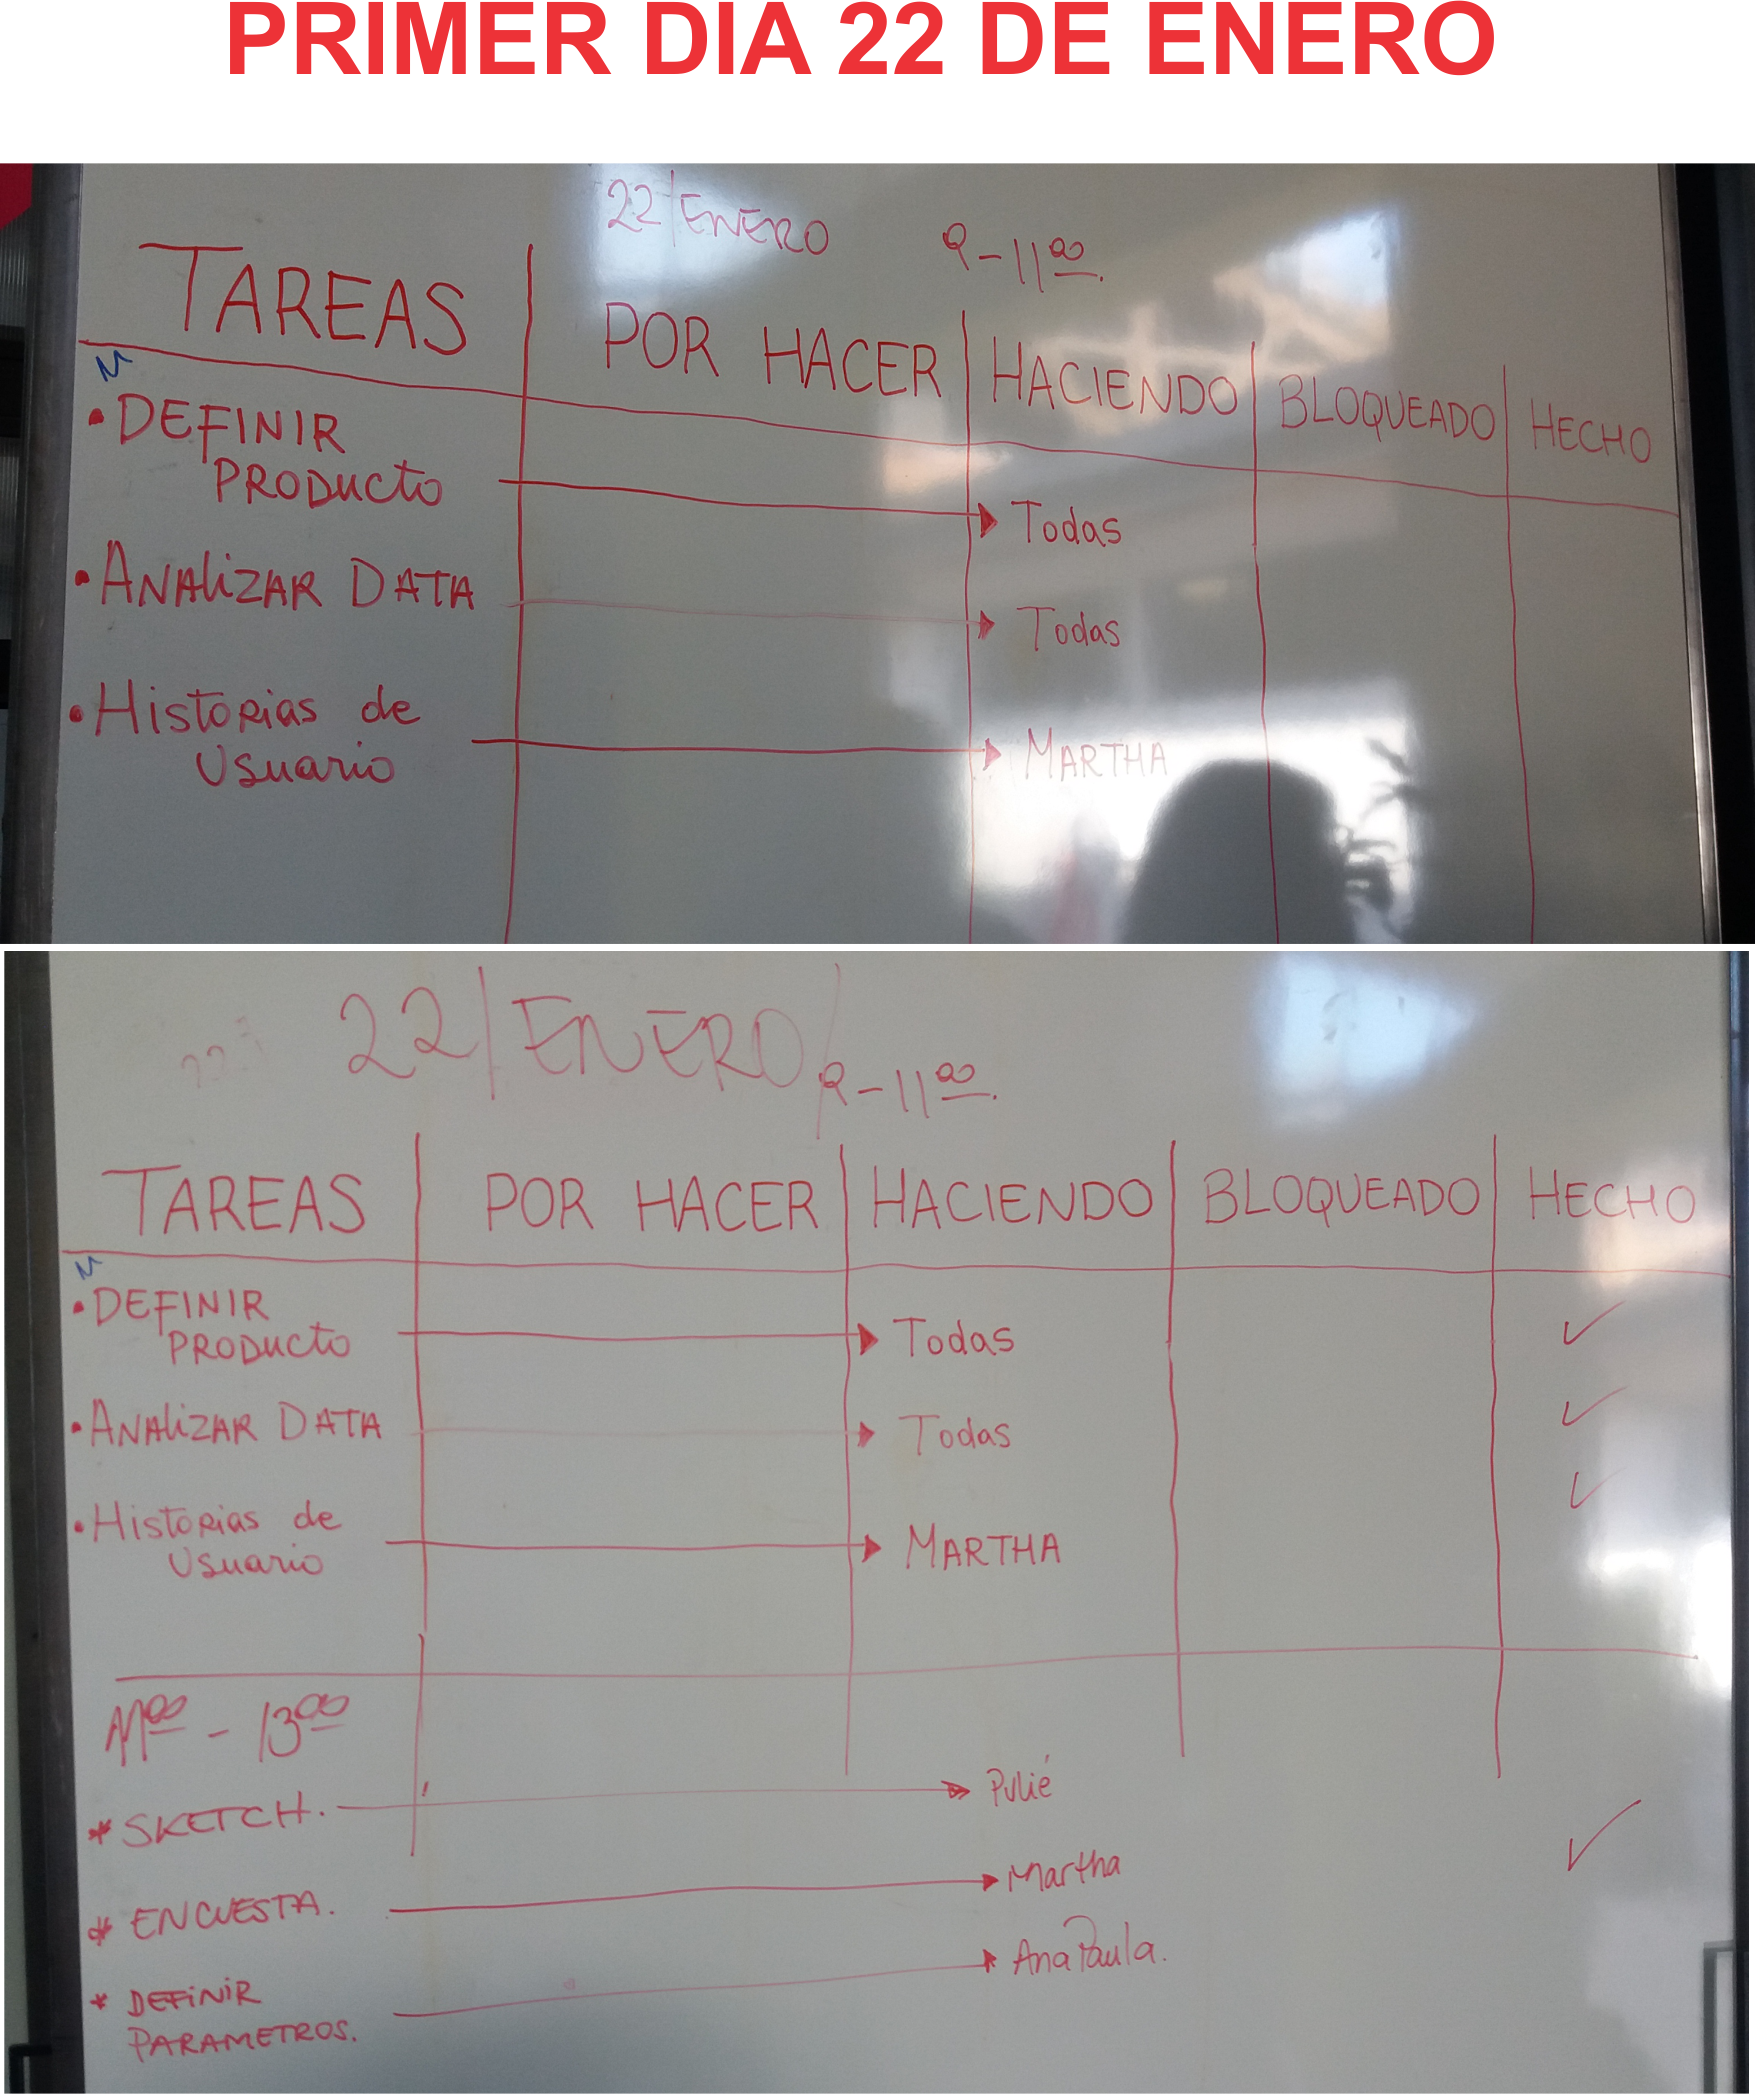 PRIMER DIA 22 DE ENERO
22/ENERO 9-11:00.
TAREAS POR HACER HACIENDO BLOQUEADO HECHO
• DEFINIR
PRODUCTO Todas
• ANALIZAR DATA Todas
• Historias de
Usuario MARTHA
22/ENERO/ 9-11:00.
TAREAS POR HACER HACIENDO BLOQUEADO HECHO
• DEFINIR
PRODUCTO Todas ✓
• ANALIZAR DATA Todas ✓
• Historias de ✓
Usuario MARTHA
11:00 - 13:00
* SKETCH.
* ENCUESTA. Martha ✓
* DEFINIR Ana Paula.
PARAMETROS.